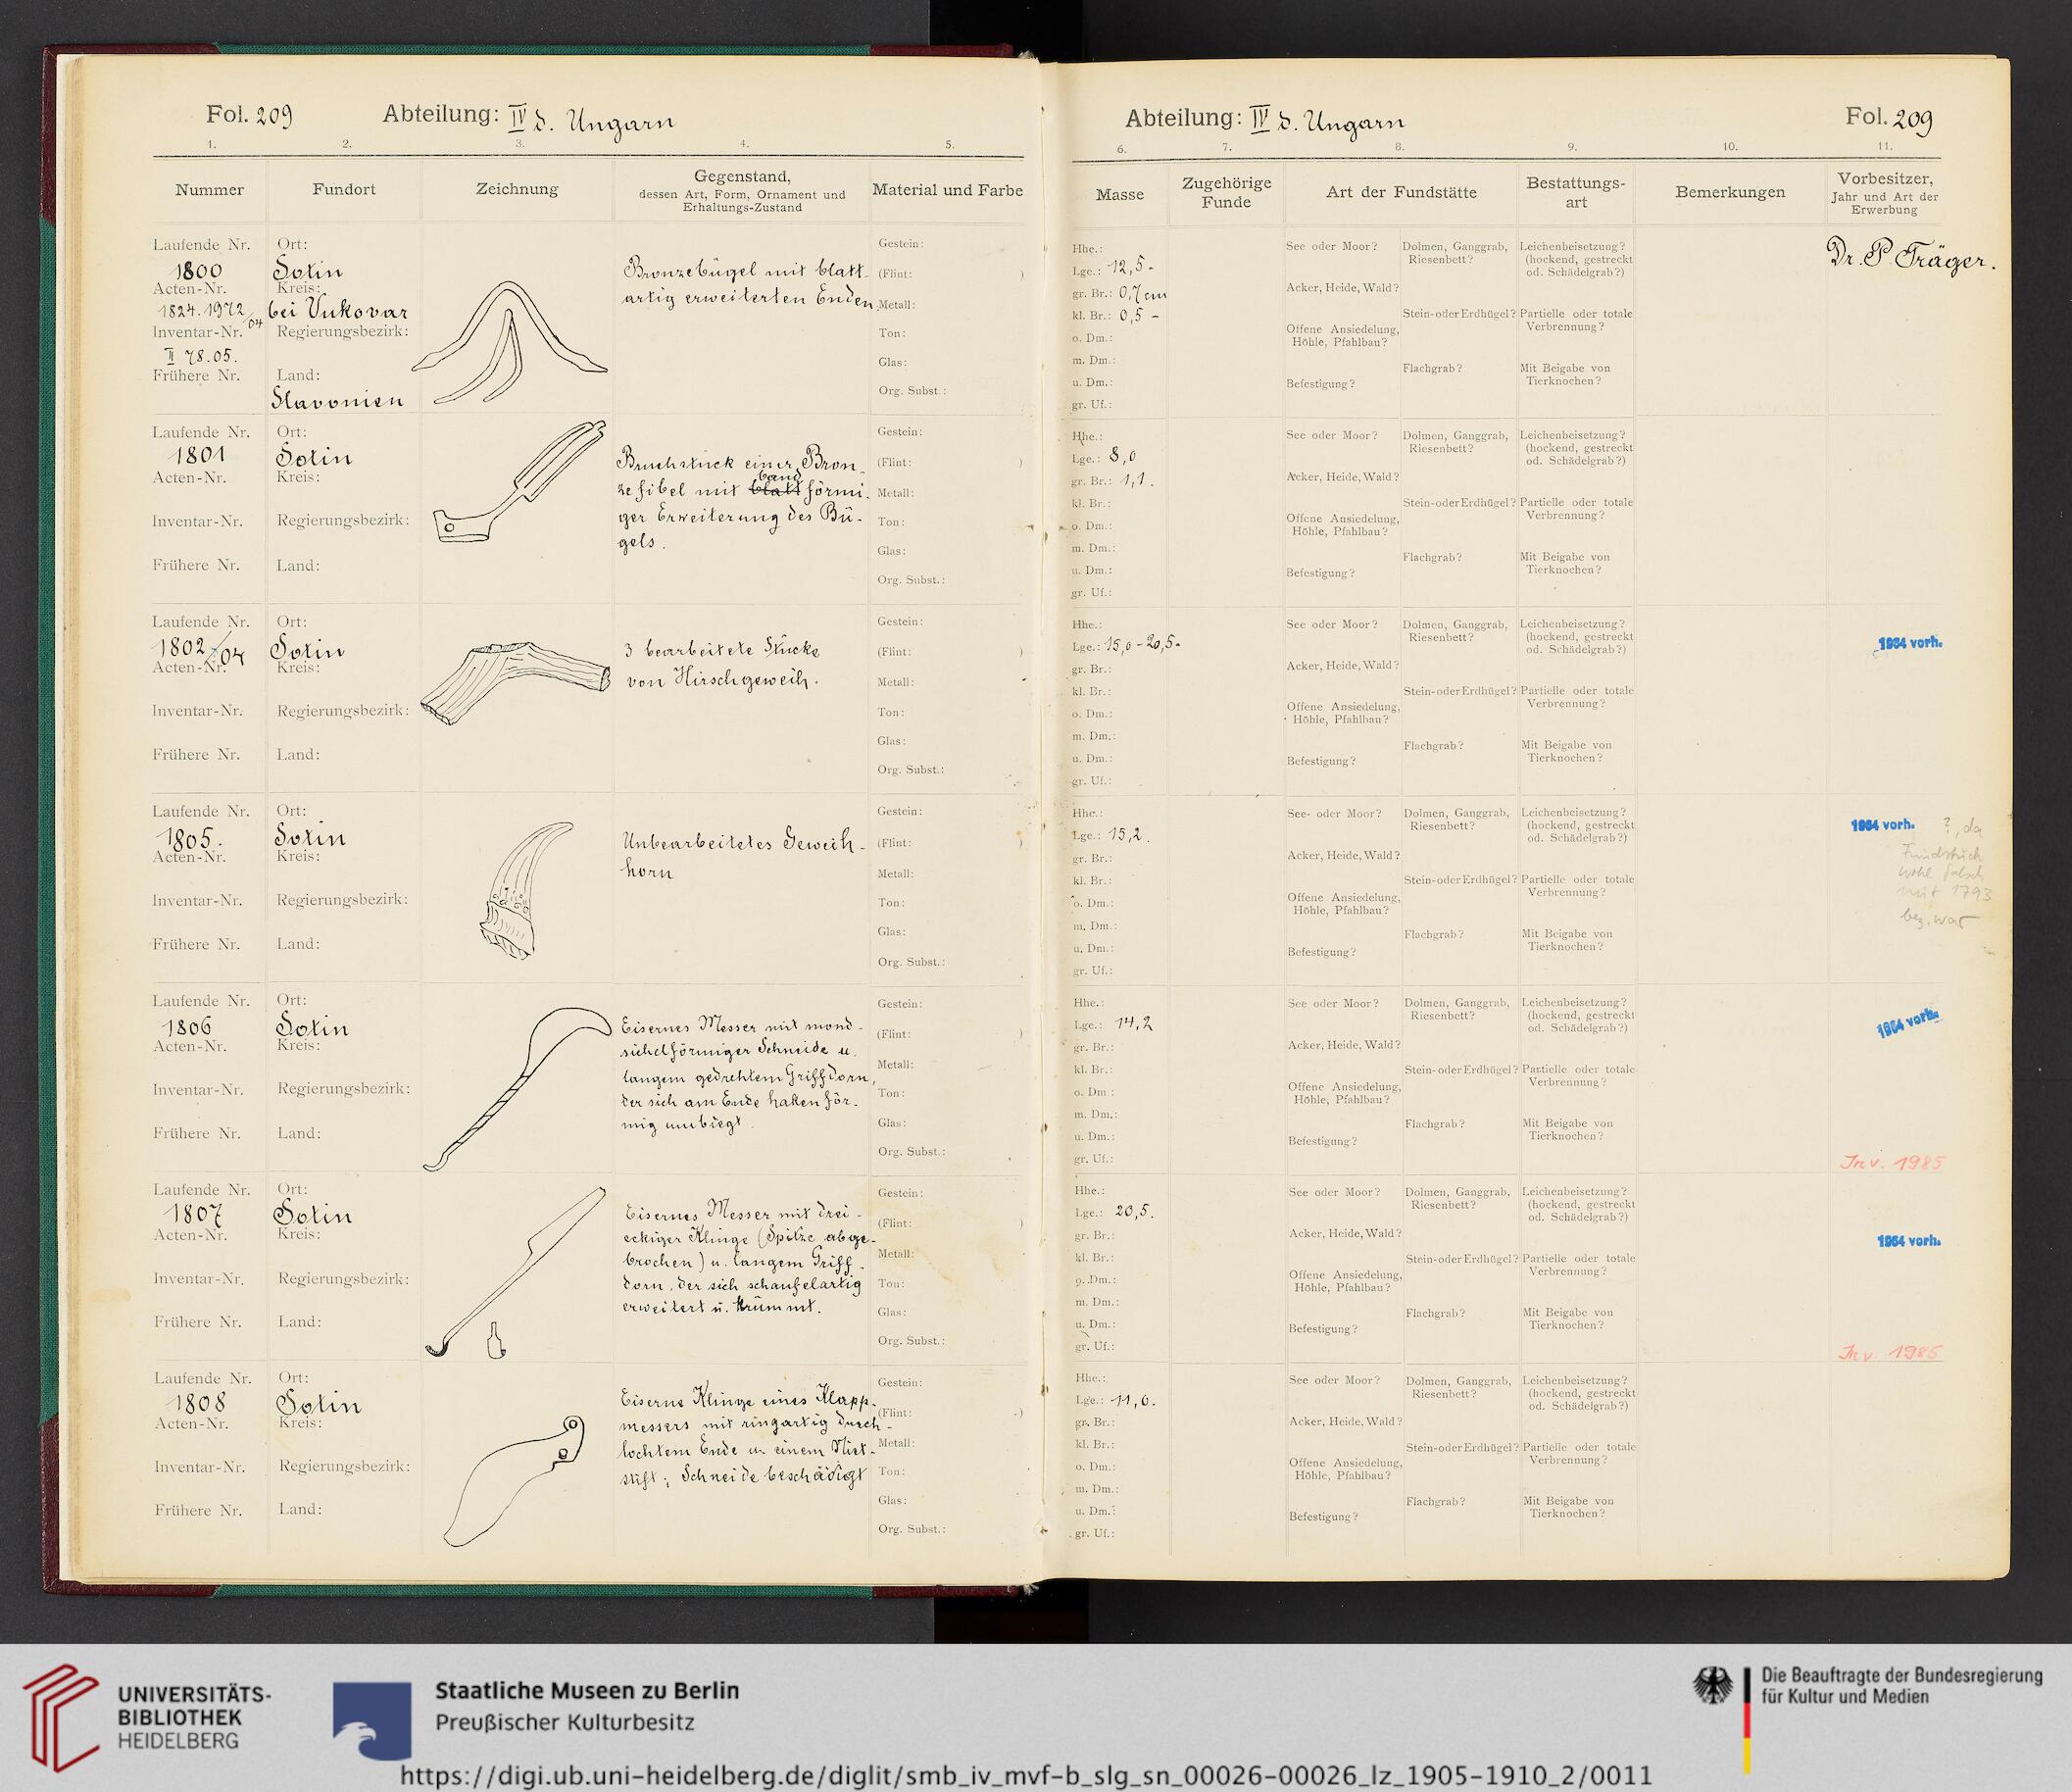 Fol. 209 Abteilung: IV d. Ungarn
1. 2. 3. 4. 5.
Nummer Fundort Zeichnung Gegenstand, dessen Art, Form, Ornament und Erhaltungs-Zustand Material und Farbe
Laufende Nr.
1800
Acten-Nr.
1824.1972/04
Inventar-Nr.
II 78.05.
Frühere Nr.
Ort:
Sotin
Kreis:
bei Vukovar
Regierungsbezirk:
Land:
Slavonien
Bronzebügel mit blatt-
artig erweiterten Enden
Gestein:
(Flint: )
Metall:
Ton:
Glas:
Org. Subst.:
Laufende Nr.
1801
Acten-Nr.
Inventar-Nr.
Frühere Nr.
Ort:
Sotin
Kreis:
Regierungsbezirk:
Land:
Bruchstück einer Bron-
band
zefibel mit blatt förmi-
ger Erweiterung des Bü-
gels.
Gestein:
(Flint: )
Metall:
Ton:
Glas:
Org. Subst.:
Laufende Nr.
1802/04
Acten-Nr.
Inventar-Nr.
Frühere Nr.
Ort:
Sotin
Kreis:
Regierungsbezirk:
Land:
3 bearbeitete Stücke
von Hirschgeweih.
Gestein:
(Flint: )
Metall:
Ton:
Glas:
Org. Subst.:
Laufende Nr.
1805.
Acten-Nr.
Inventar-Nr.
Frühere Nr.
Ort:
Sotin
Kreis:
Regierungsbezirk:
Land:
Unbearbeitetes Geweih-
horn
Gestein:
(Flint: )
Metall:
Ton:
Glas:
Org. Subst.:
Laufende Nr.
1806
Acten-Nr.
Inventar-Nr.
Frühere Nr.
Ort:
Sotin
Kreis:
Regierungsbezirk:
Land:
Eisernes Messer mit mond-
sichelförmiger Schneide u.
langem gedrehtem Griffdorn,
der sich am Ende haken för-
mig umbiegt.
Gestein:
(Flint: )
Metall:
Ton:
Glas:
Org. Subst.:
Laufende Nr.
1807
Acten-Nr.
Inventar-Nr.
Frühere Nr.
Ort:
Sotin
Kreis:
Regierungsbezirk:
Land:
Eisernes Messer mit drei-
eckiger Klinge (Spitze abge-
brochen) u. langem Griff-
dorn, der sich schaufelartig
erweitert u. krümmt.
Gestein:
(Flint: )
Metall:
Ton:
Glas:
Org. Subst.:
Laufende Nr.
1808
Acten-Nr.
Inventar-Nr.
Frühere Nr.
Ort:
Sotin
Kreis:
Regierungsbezirk:
Land:
Eiserne Klinge eines Klapp-
messers mit ringartig durch-
lochtem Ende u. einem Niet-
stift; Schneide beschädigt
Gestein:
(Flint: )
Metall:
Ton:
Glas:
Org. Subst.:
Abteilung: IV d. Ungarn Fol. 209
6. 7. 8. 9. 10. 11.
Masse Zugehörige Funde Art der Fundstätte Bestattungs-art Bemerkungen Vorbesitzer, Jahr und Art der Erwerbung
Hhe.:
Lge.: 12,5-
gr. Br.: 0,7cm
kl. Br.: 0,5 -
o. Dm.:
m. Dm.:
u. Dm.:
gr. Uf.:
See oder Moor?
Acker, Heide, Wald?
Offene Ansiedelung,
Höhle, Pfahlbau?
Befestigung?
Dolmen, Ganggrab,
Riesenbett?
Stein- oder Erdhügel?
Flachgrab?
Leichenbeisetzung?
(hockend, gestreckt
od. Schädelgrab?)
Partielle oder totale
Verbrennung?
Mit Beigabe von
Tierknochen?
Dr. P Träger.
Hhe.:
Lge.: 8,0
gr. Br.: 1,1.
kl. Br.:
o. Dm.:
m. Dm.:
u. Dm.:
gr. Uf.:
See oder Moor?
Acker, Heide, Wald?
Offene Ansiedelung,
Höhle, Pfahlbau?
Befestigung?
Dolmen, Ganggrab,
Riesenbett?
Stein- oder Erdhügel?
Flachgrab?
Leichenbeisetzung?
(hockend, gestreckt
od. Schädelgrab?)
Partielle oder totale
Verbrennung?
Mit Beigabe von
Tierknochen?
Hhe.:
Lge.: 15,0-20,5.
gr. Br.:
kl. Br.:
o. Dm.:
m. Dm.:
u. Dm.:
gr. Uf.:
See oder Moor?
Acker, Heide, Wald?
Offene Ansiedelung,
Höhle, Pfahlbau?
Befestigung?
Dolmen, Ganggrab,
Riesenbett?
Stein- oder Erdhügel?
Flachgrab?
Leichenbeisetzung?
(hockend, gestreckt
od. Schädelgrab?)
Partielle oder totale
Verbrennung?
Mit Beigabe von
Tierknochen?
1964 vorh.
Hhe.:
Lge.: 15,2.
gr. Br.:
kl. Br.:
o. Dm.:
m. Dm.:
u. Dm.:
gr. Uf.:
See- oder Moor?
Acker, Heide, Wald?
Offene Ansiedelung,
Höhle, Pfahlbau?
Befestigung?
Dolmen, Ganggrab,
Riesenbett?
Stein- oder Erdhügel?
Flachgrab?
Leichenbeisetzung?
(hockend, gestreckt
od. Schädelgrab?)
Partielle oder totale
Verbrennung?
Mit Beigabe von
Tierknochen?
1964 vorh. ?, da
Fundstück
wohl falsch
mit 1793
bez. war
Hhe.:
Lge.: 14,2
gr. Br.:
kl. Br.:
o. Dm.:
m. Dm.:
u. Dm.:
gr. Uf.:
See oder Moor?
Acker, Heide, Wald?
Offene Ansiedelung,
Höhle, Pfahlbau?
Befestigung?
Dolmen, Ganggrab,
Riesenbett?
Stein- oder Erdhügel?
Flachgrab?
Leichenbeisetzung?
(hockend, gestreckt
od. Schädelgrab?)
Partielle oder totale
Verbrennung?
Mit Beigabe von
Tierknochen?
1964 vorh.
Inv. 1985
Hhe.:
Lge.: 20,5.
gr. Br.:
kl. Br.:
o. Dm.:
m. Dm.:
u. Dm.:
gr. Uf.:
See oder Moor?
Acker, Heide, Wald?
Offene Ansiedelung,
Höhle, Pfahlbau?
Befestigung?
Dolmen, Ganggrab,
Riesenbett?
Stein- oder Erdhügel?
Flachgrab?
Leichenbeisetzung?
(hockend, gestreckt
od. Schädelgrab?)
Partielle oder totale
Verbrennung?
Mit Beigabe von
Tierknochen?
1964 vorh.
Inv. 1985
Hhe.:
Lge.: 11,0.
gr. Br.:
kl. Br.:
o. Dm.:
m. Dm.:
u. Dm.:
gr. Uf.:
See oder Moor?
Acker, Heide, Wald?
Offene Ansiedelung,
Höhle, Pfahlbau?
Befestigung?
Dolmen, Ganggrab,
Riesenbett?
Stein- oder Erdhügel?
Flachgrab?
Leichenbeisetzung?
(hockend, gestreckt
od. Schädelgrab?)
Partielle oder totale
Verbrennung?
Mit Beigabe von
Tierknochen?
UNIVERSITÄTS-
BIBLIOTHEK
HEIDELBERG
Staatliche Museen zu Berlin
Preußischer Kulturbesitz
Die Beauftragte der Bundesregierung
für Kultur und Medien
https://digi.ub.uni-heidelberg.de/diglit/smb_iv_mvf-b_slg_sn_00026-00026_lz_1905-1910_2/0011